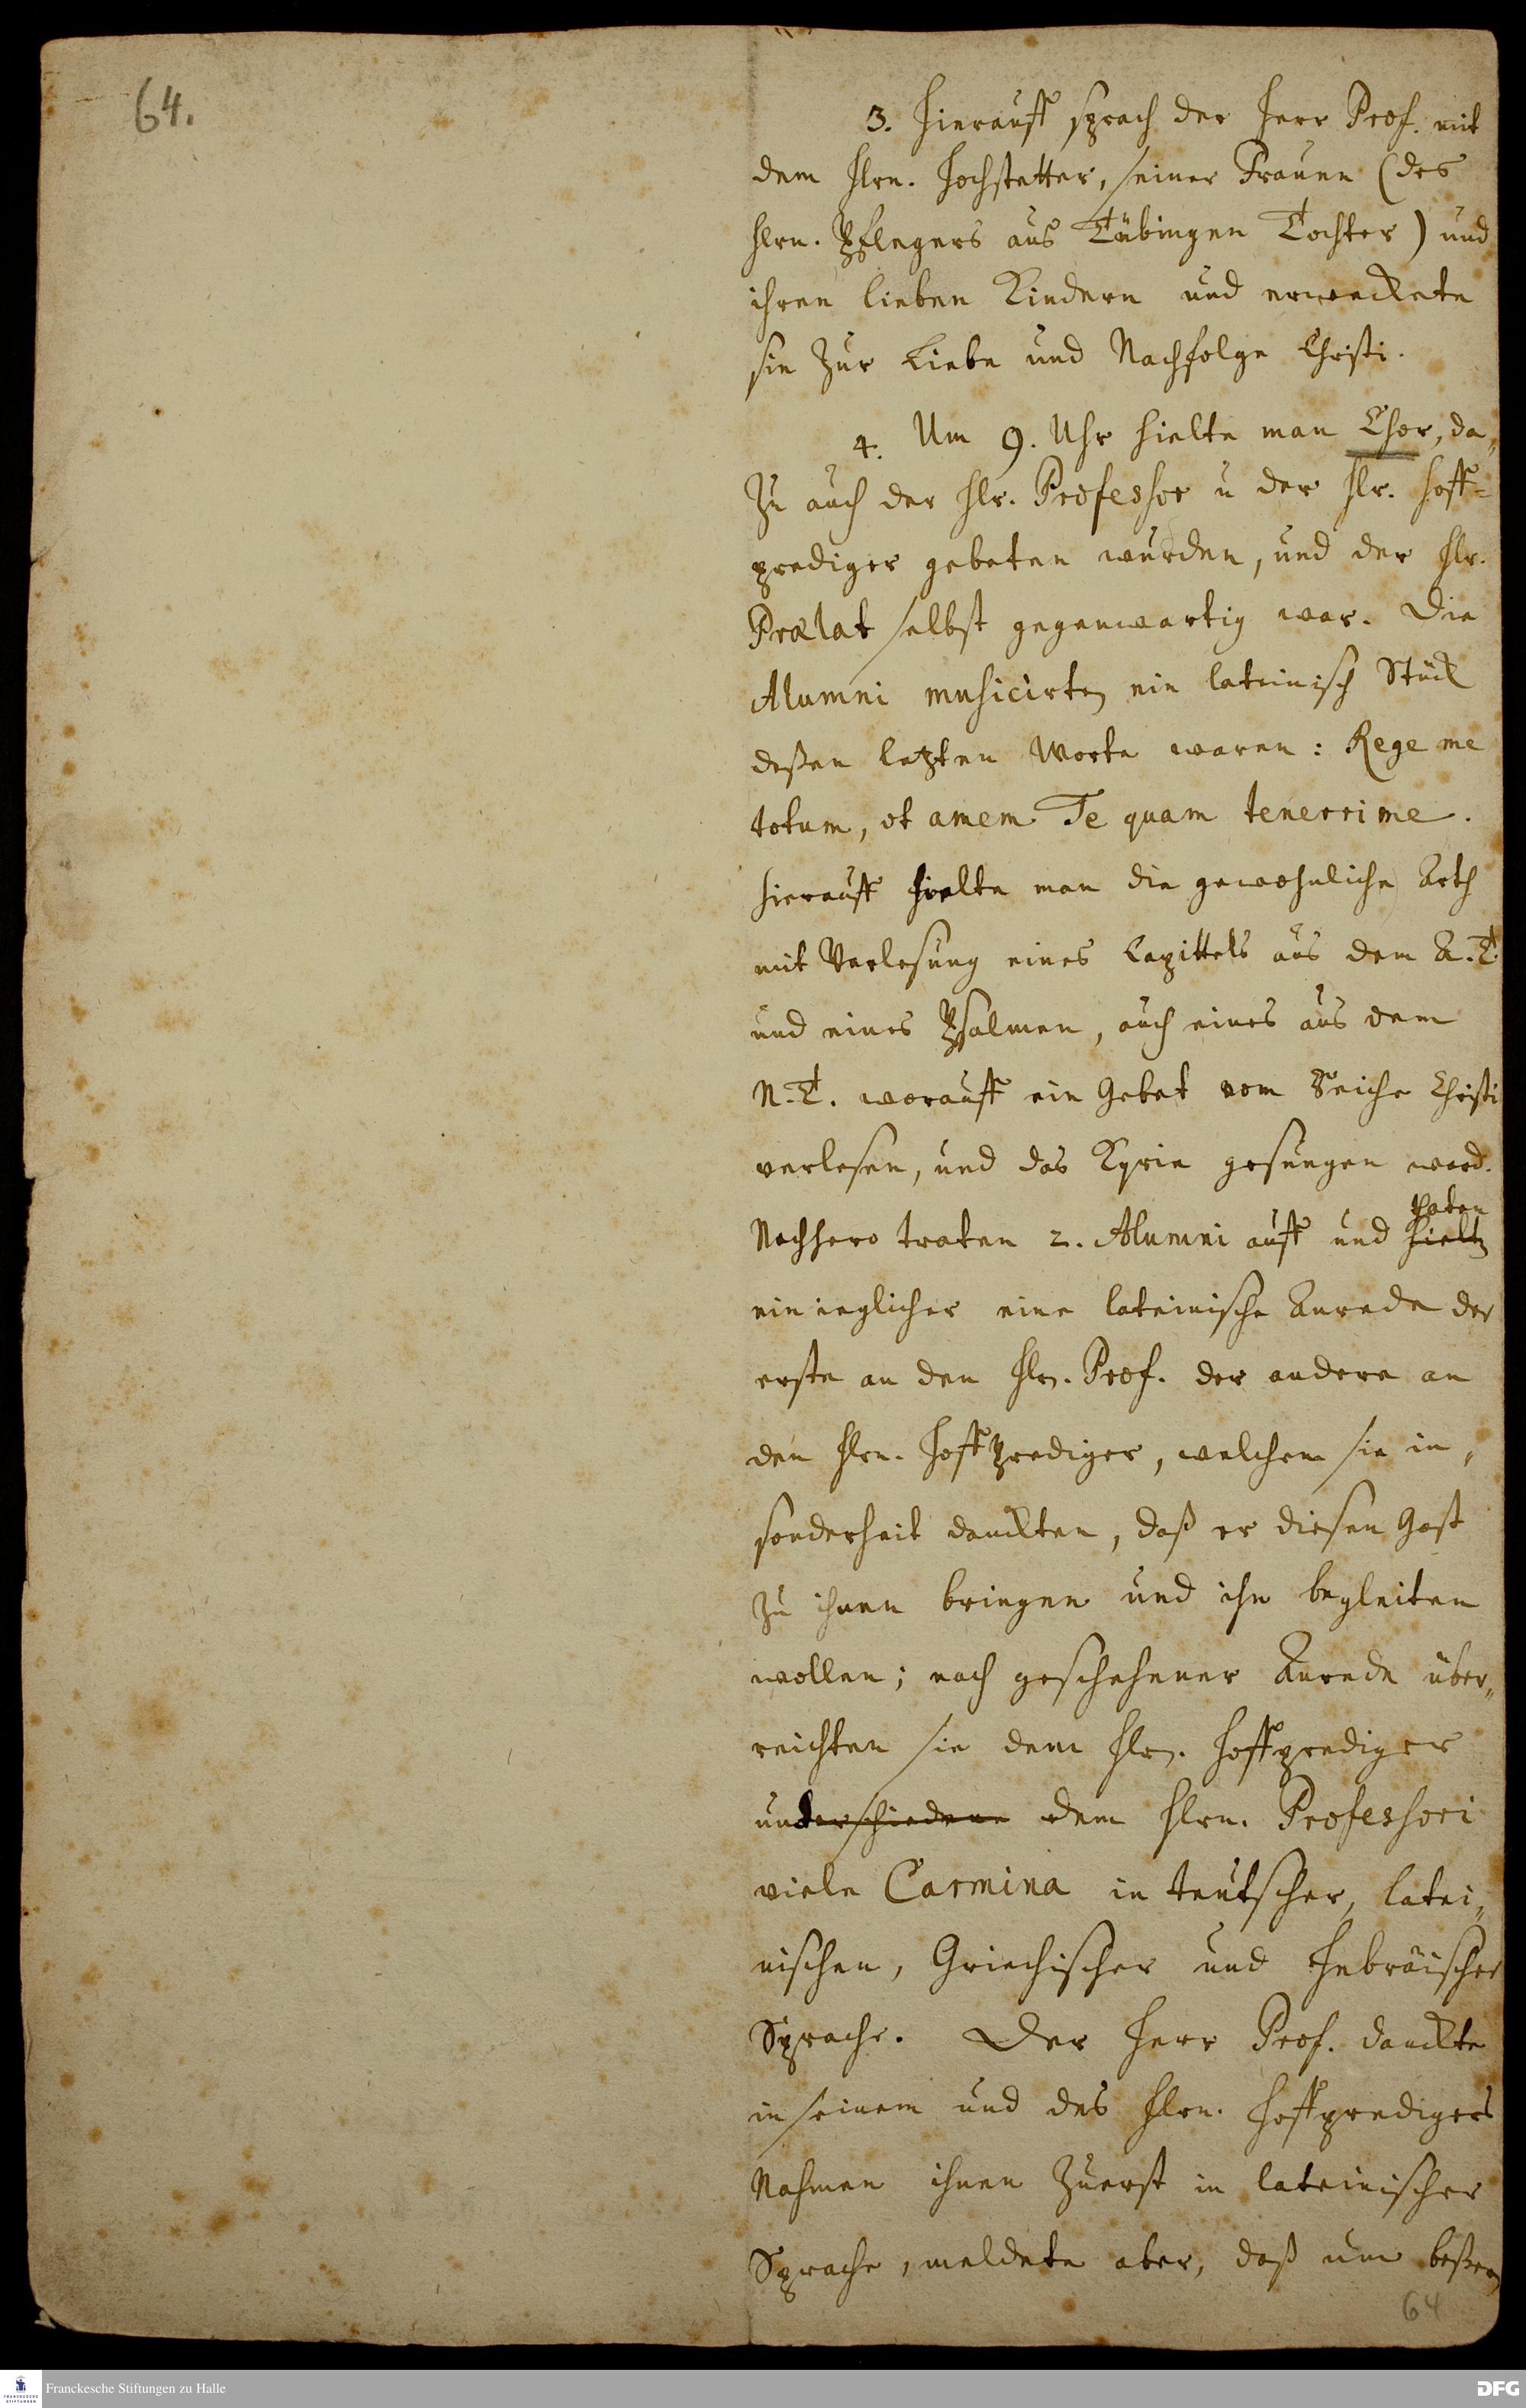 64.
3. Hierauff sprach der Herr Prof. mit
dem Hrn. Hochstetter, seiner Frauen (des
Hrn. Pflegers aus Tübingen Tochter) und
ihren lieben Kindern und erweckete
sie zur Liebe und Nachfolge Christi.
4. Um 9. Uhr hielte man Chor, da„
zu auch der Hr. Professor u der Hr. Hoff=
prediger gebeten wurden, und der Hr.
Prælat selbst gegenwartig war. Die
Alumni musicirten ein lateinisch Stück
deßen letzten Worte waren: Rege me
totum, ut amem Te quam tenerrime.
Hierauff hielte man die gewohnliche Beth
mit Verlesung eines Capittels aus dem A.T.
und eines Psalmen, auch eines aus dem
N.T. worauff ein Gebet vom Reiche Christi
verlesen, und das Kyrie gesungen ward.
thaten
Nachhero traten 2. Alumni auff und hielten
ein ieglicher eine lateinische Anrede der
erste an den Hrn. Prof. der andere an
den Hrn. Hoffprediger, welchem sie in„
sonderheit danckten, daß er diesen Gast
zu ihnen bringen und ihn begleiten
wollen; nach geschehener Anrede über„
reichten sie dem Hrn. Hoffprediger
underschiedene dem Hrn. Professori
viele Carmina in teutscher, latei„
nischen, Griechischer und Hebräischer
Sprache. Der Herr Prof. danckte
in seinem und des Hrn. Hoffpredigers
Nahmen ihnen zuerst in lateinischer
Sprache, meldete aber, daß um beßern
64
Franckesche Stiftungen zu Halle
DFG